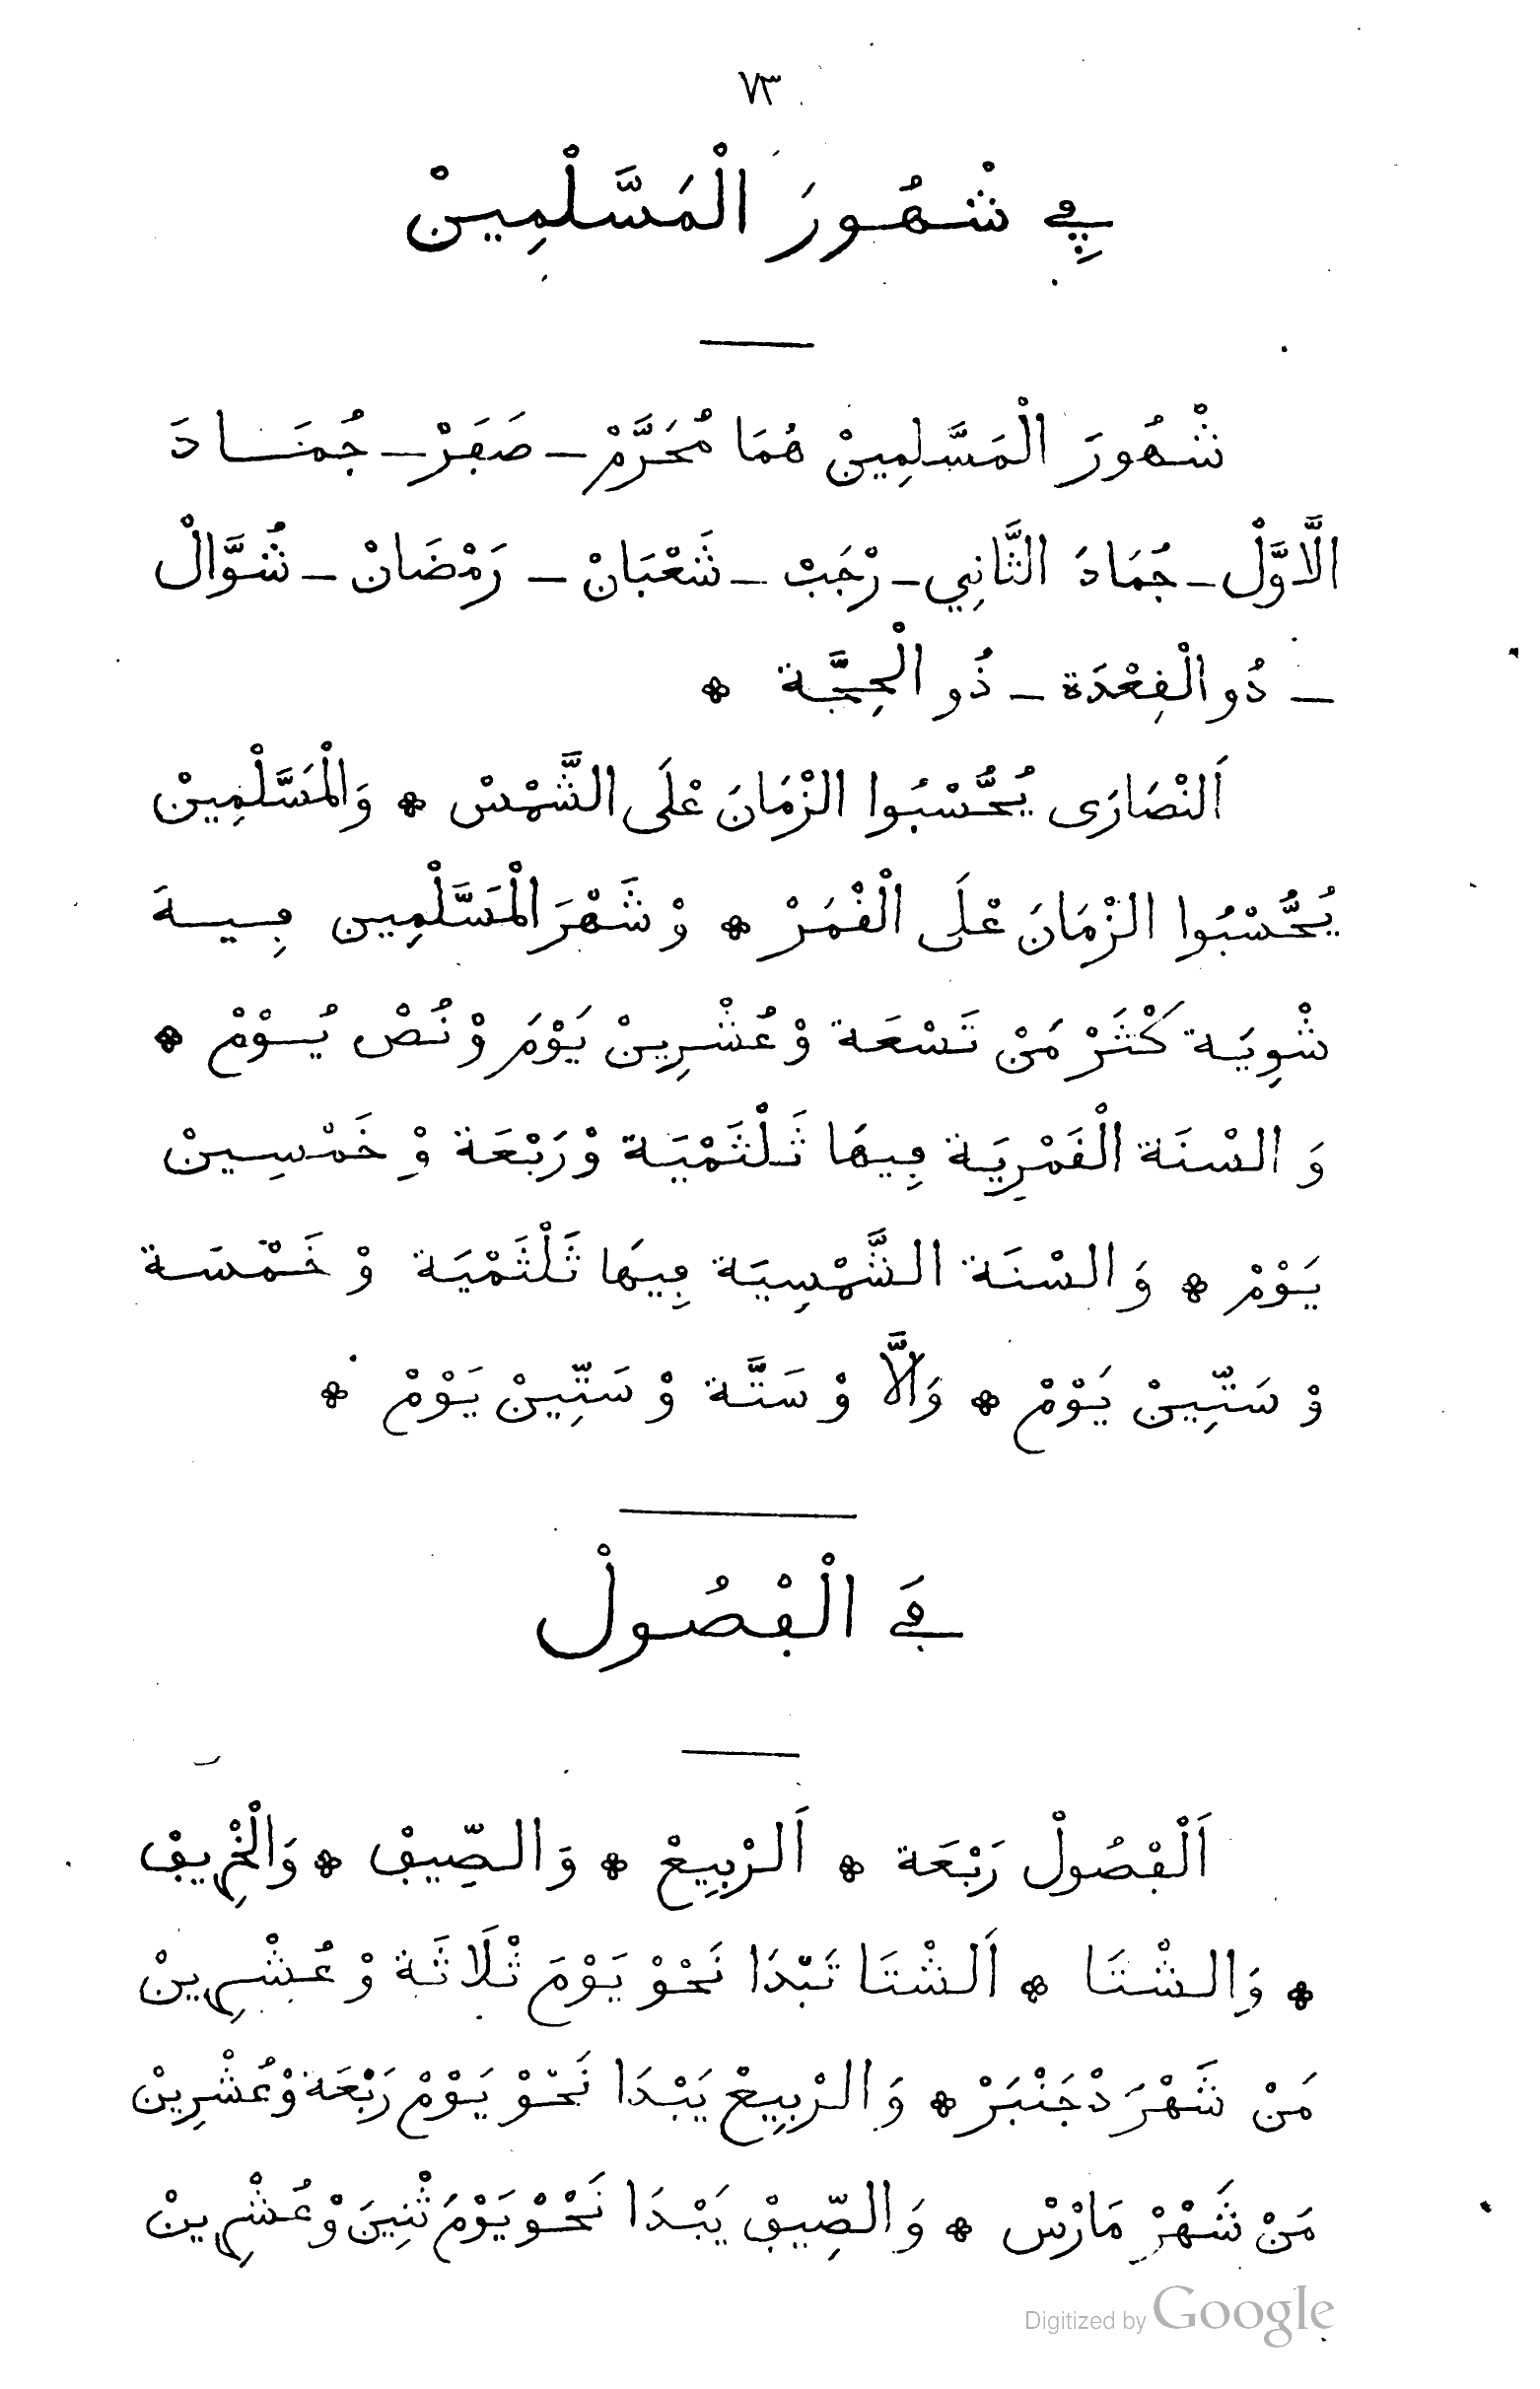 ٧٣
ڢِي شْهُورَ الْمَسَّلْمِينْ
شْهُورَ الْمَسَّلمِينْ هُمَا مُحَرَّمْ ـ صَڢَرْ ـ جُمَــادَ
الَّاوَّلْ ـ جُمَادَ الثَّانِي ـ رْجَبْ ـ شَعْبَانْ ـ رَمْضَانْ ـ شُوَّالْ
ـ ذُو الْفِعْدَة ـ ذُو الْحِجَّة ❊
اَلنْصَارَى يُحَّسْبُوا الزْمَانَ عْلَى الشَّمْسْ ❊ وَالْمَسَّلْمِينْ
يُحَّسْبُوا الزْمَانَ عْلَى الْفْمَرْ ❊ وْ شَهْرَ الْمَسَّلْمِين ڢِيـهَ
شْوِيَة كْثَرْ مَنْ تَسْعَة وْ عُشْرِينْ يَوْمَ وْ نُصْ يُـوْمْ ❊
وَ السْنَة الْفَمْرِيَة ڢِيهَا ثَلْثَمْيَة وْ رَبْعَة وْ خَمْسِينْ
يَوْمْ ❊ وَ السْنَة الشَّمْسِيَة ڢِيهَا ثَلْثَمْيَة وْ خَمْسَة
وْ سَتِّينْ يَوْمْ ❊ وَالَّا وْ سَتَّة وْ سَتِّينْ يَوْمْ ❊
ڢَي الْڢْصُولْ
اَلْڢْصُولْ رَبْعَة ❊ اَلرْبِيعْ ❊ وَ الصِّيڢْ ❊ وَالْخْرِيڢْ
❊ وَالشْتَا ❊ اَلشْتَا تَبْدَا نَحْوْ يَوْمَ ثْلَاثَة وْ عُشْرِينْ
مَنْ شَهْرَ دْجَنْبَرْ ❊ وَ الرْبِيعْ يَبْدَا نَحْوْ يَوْمْ رَبْعَة وْ عُشْرِينْ
مَنْ شَهْرْ مَارْسْ ❊ وَ الصِّيڢْ يَبْدَا نَحْوْ يَوْمَ ثْنِينَ وْ عُشْرِينْ
Digitized by Google